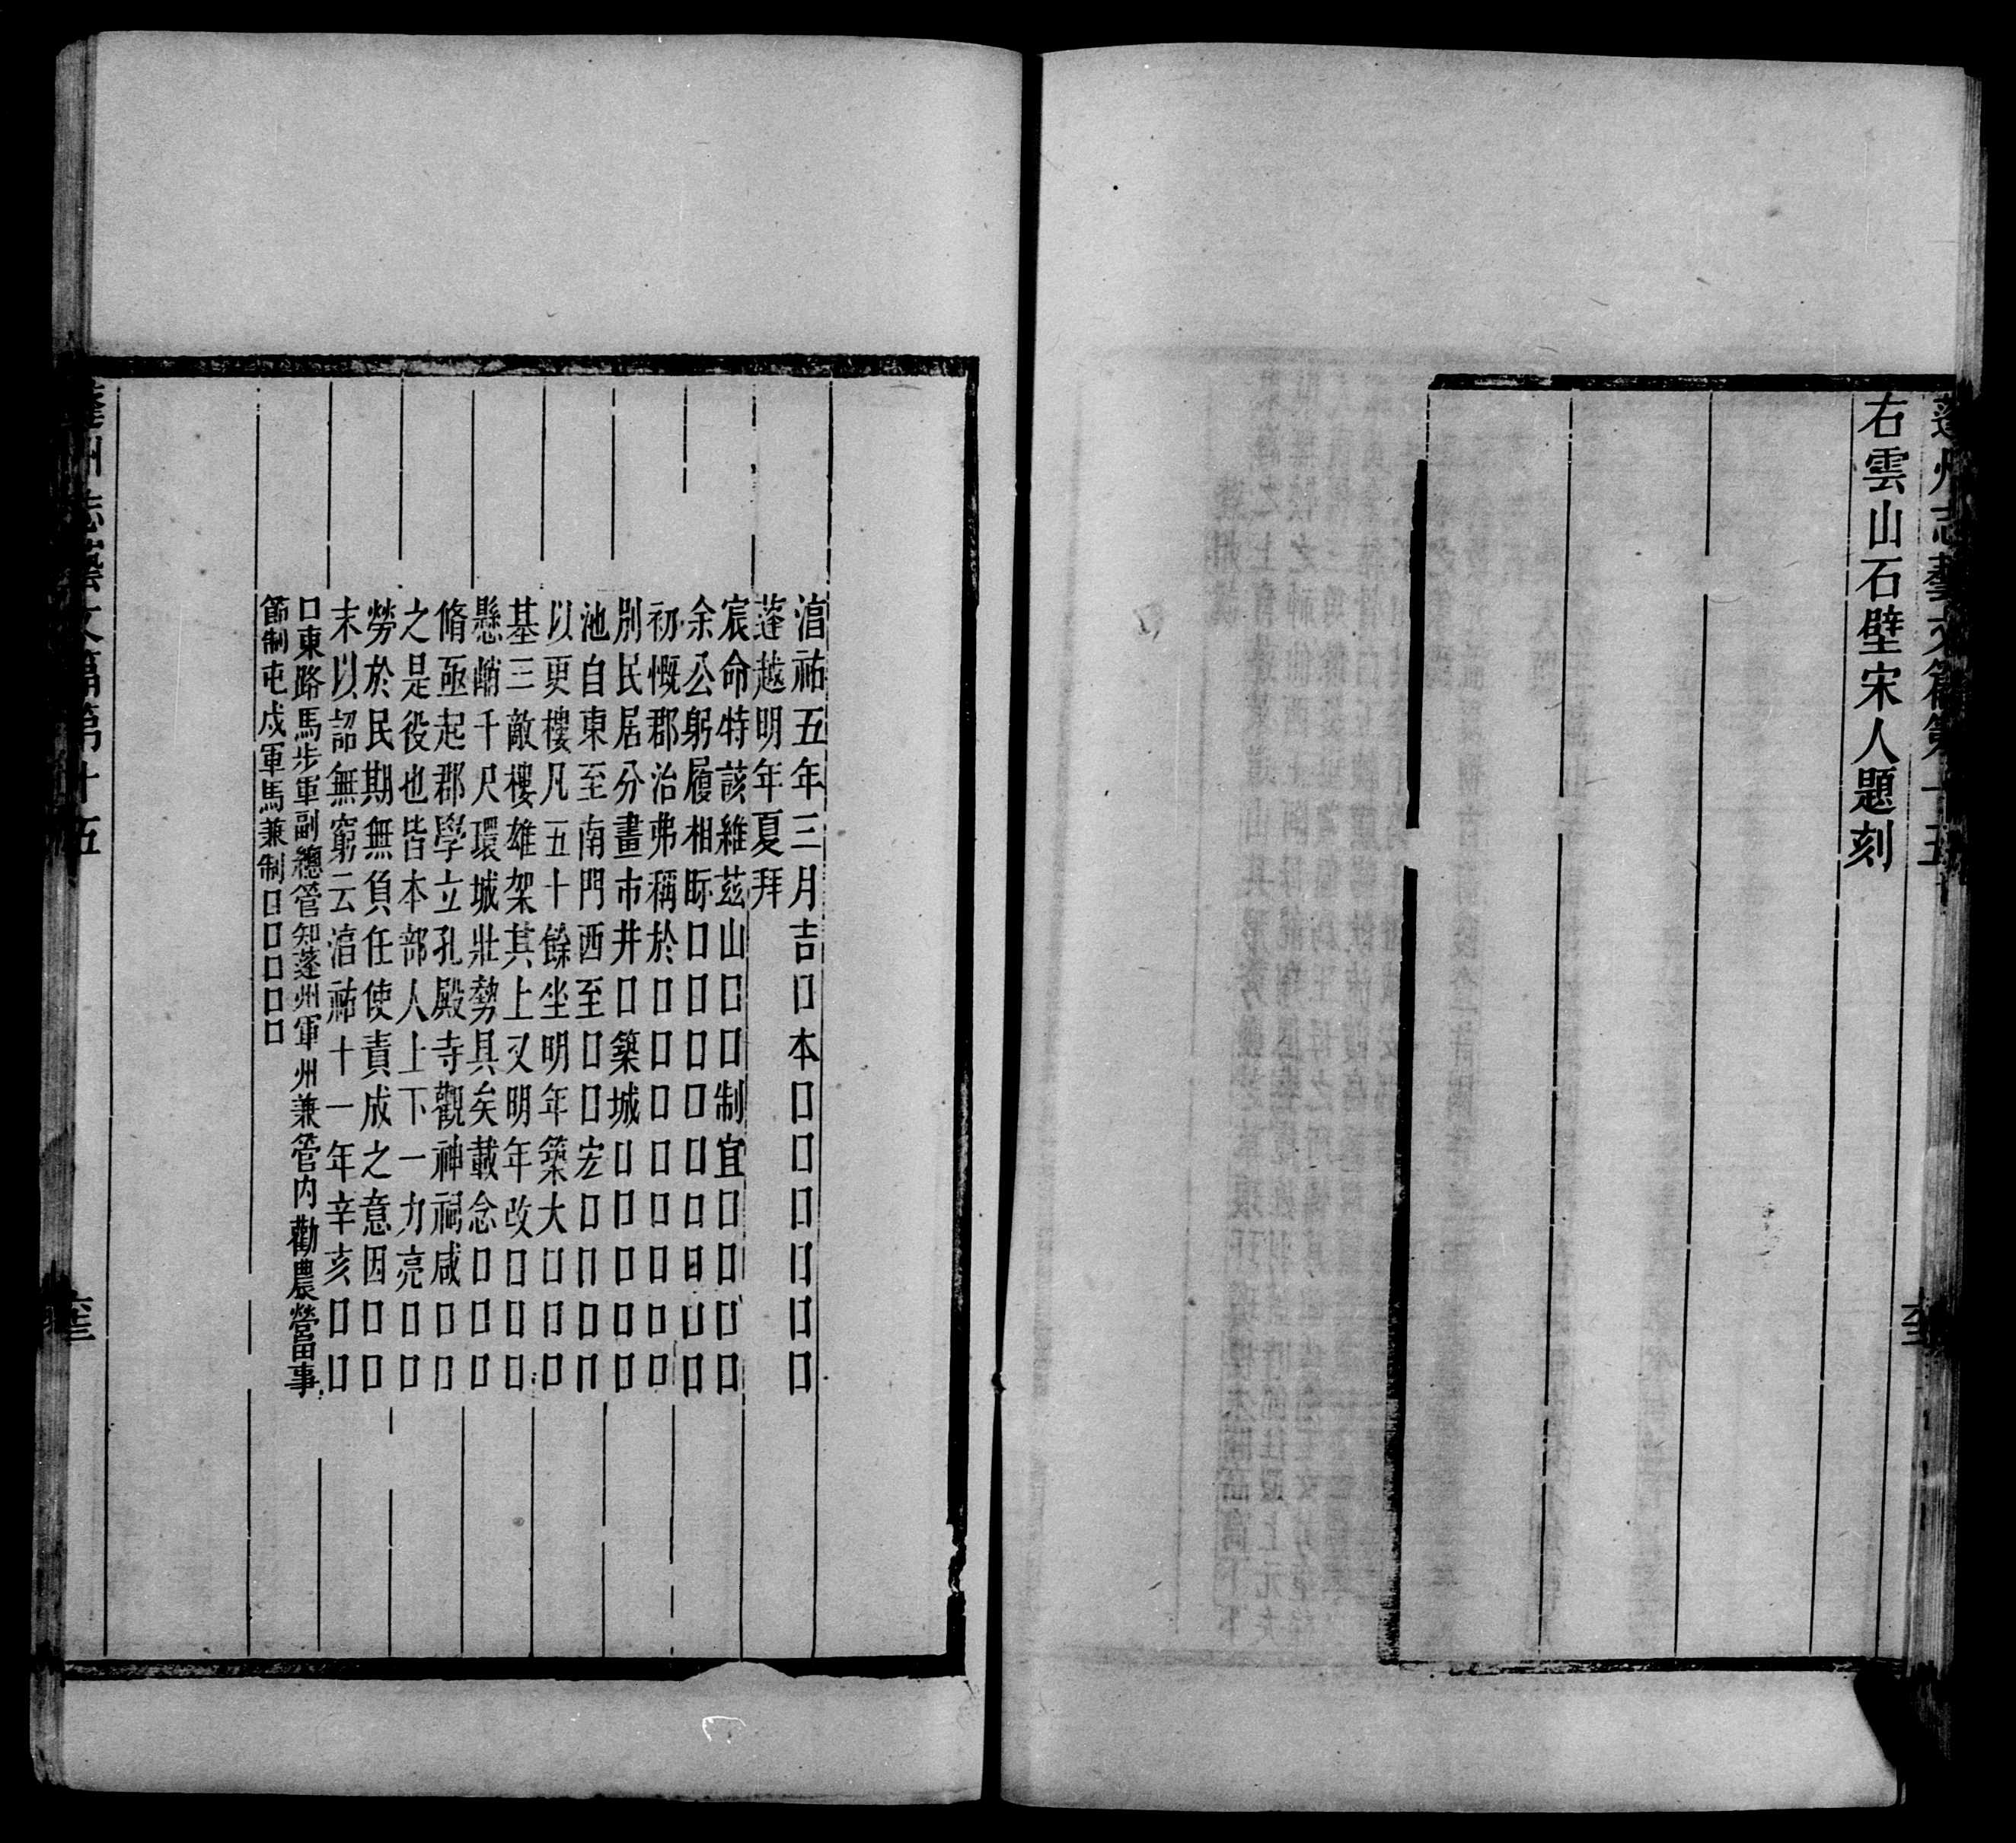 蓬州志藝文篇第十五
右雲山石壁宋人題刻
湻祐五年三月吉□本□□□□□□
蓬越明年夏拜
宸命特該維茲山□□制宜□□□□
余公躬履相眎□□□□□□□□□
初慨郡治弗稱於□□□□□□□□
別民居分畫市井□築城□□□□□
池自東至南門西至□□宏□□□□
以更樓凡五十餘坐明年築大□□□
基三敵樓雄架其上又明年改□□□
懸峭千尺環城壯勢具矣載念□□□
脩亟起郡學立孔殿寺觀神祠咸□□
之是役也皆本部人上下一力亮□□
勞於民期無負任使責成之意因□□
末以詔無窮云湻祐十一年辛亥□□
□東路馬步軍副總管知蓬州軍州兼管內勸農營田事
節制屯戍軍馬兼制□□□□□
蓬州志藝文篇第十五